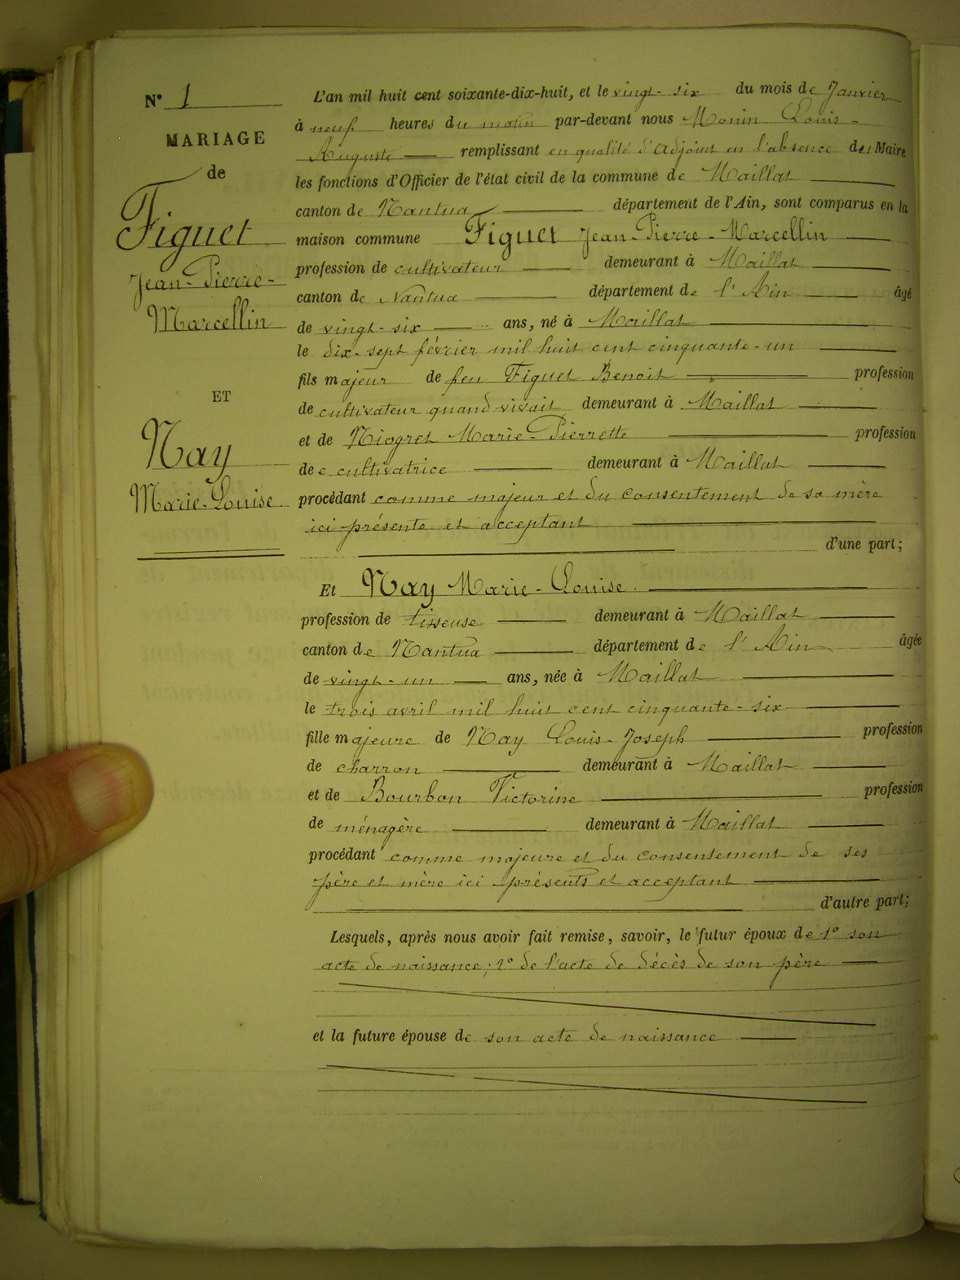 N° 1
MARIAGE
de
Figuet
Jean-Pierre-
Marcellin
ET
Nay
Marie-Louise
L'an mil huit cent soixante-dix-huit, et le vingt-six du mois de Janvier
à neuf heures du matin par-devant nous Monin Louis-
Auguste remplissant en qualité d'Adjoint en l'absence du Maire
les fonctions d'Officier de l'état civil de la commune de Maillat
canton de Nantua département de l'Ain, sont comparus en la
maison commune Figuet Jean-Pierre-Marcellin
profession de cultivateur demeurant à Maillat
canton de Nantua département de l'Ain âgé
de vingt-six ans, né à Maillat
le dix-sept février mil huit cent cinquante-un
fils majeur de feu Figuet Benoit profession
de cultivateur quand vivait demeurant à Maillat
et de Niogret Marie-Pierrette profession
de cultivatrice demeurant à Maillat
procédant comme majeur et du consentement de sa mère
ici présente et acceptant
d'une part;
Et Nay Marie-Louise.
profession de tisseuse demeurant à Maillat
canton de Nantua département de l'Ain âgée
de vingt-un ans, née à Maillat
le trois avril mil huit cent cinquante-six
fille majeure de Nay Louis-Joseph profession
de charron demeurant à Maillat
et de Bourbon Victorine profession
de ménagère demeurant à Maillat
procédant comme majeure et du consentement de ses
père et mère ici présents et acceptant
d'autre part;
Lesquels, après nous avoir fait remise, savoir, le futur époux de 1° son
acte de naissance; 2° de l'acte de décès de son père
et la future épouse de son acte de naissance